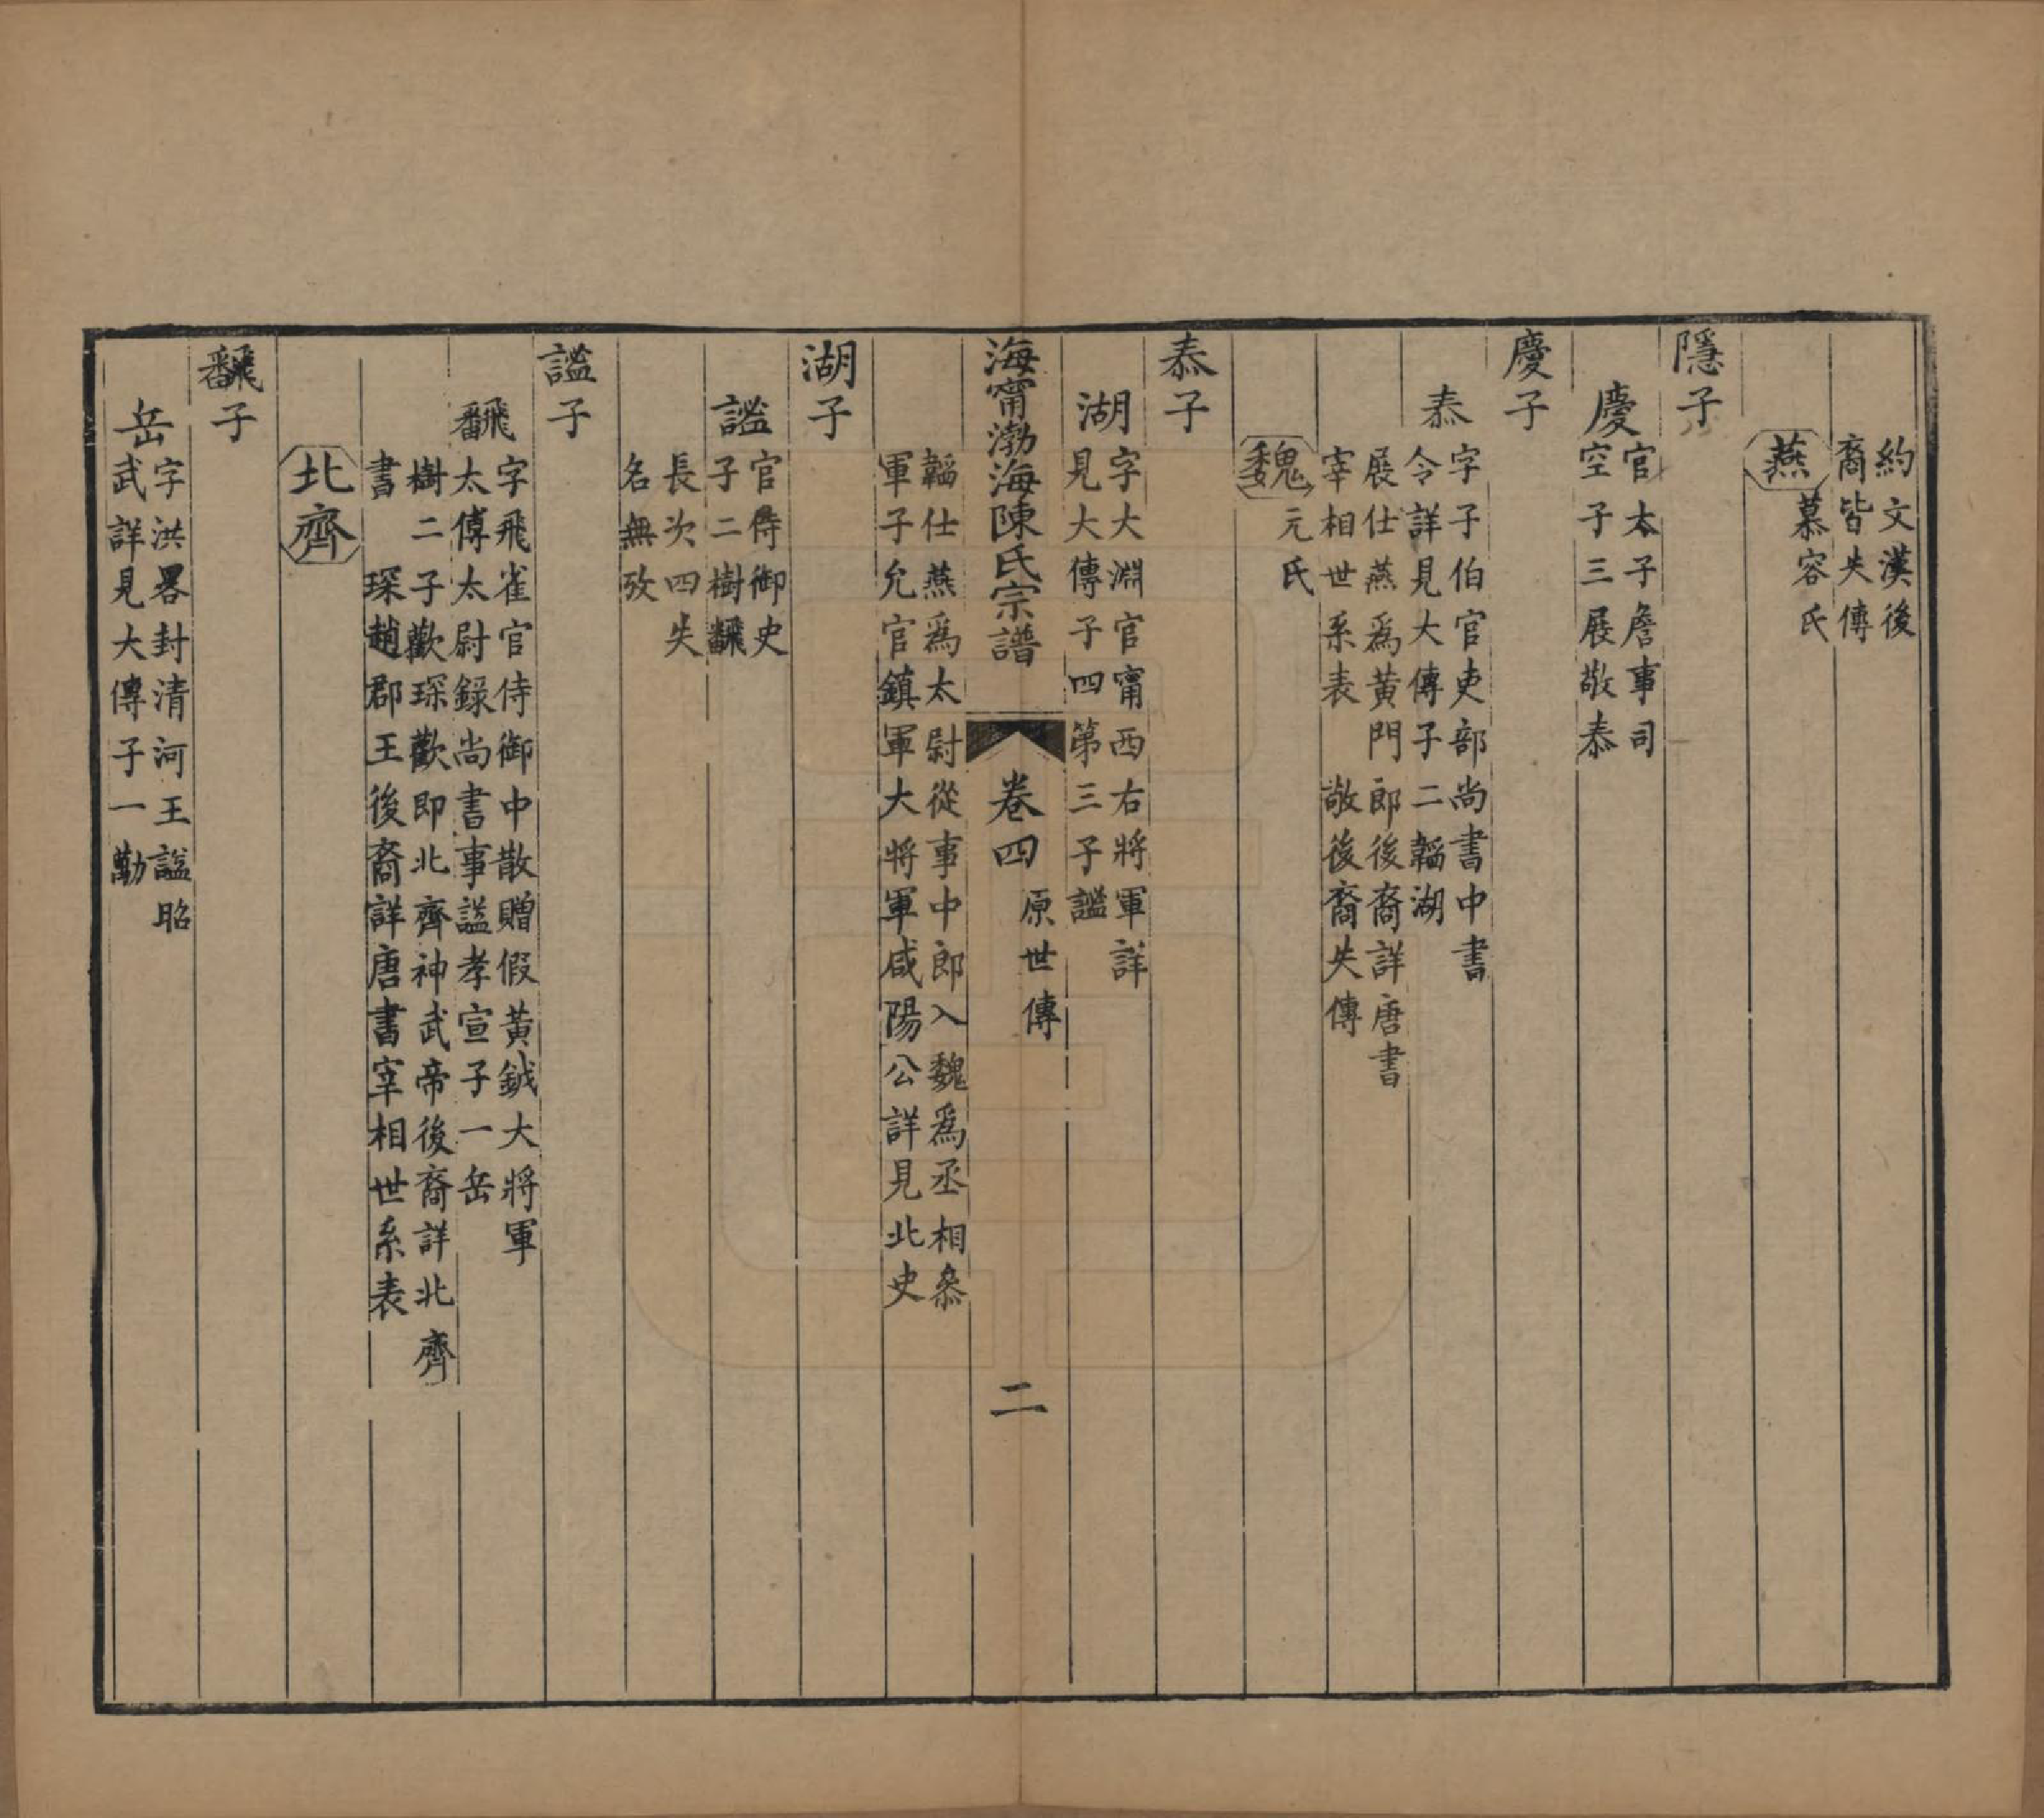 約文漢後
裔皆失傳
燕
慕容氏
隱子
慶
官太子詹事司
空子三展敬泰
慶子
泰
字子伯官吏部尚書中書
令詳見大傳子二韜湖
展仕燕爲黃門郎後裔詳唐書
宰相世系表　敬後裔失傳
魏
元氏
泰子
湖
字大淵官甯西右將軍詳
見大傳子四第三子謐
海甯渤海陳氏宗譜
卷四
原世傳
二
韜仕燕爲太尉從事中郎入魏爲丞相叅
軍子允官鎮軍大將軍咸陽公詳見北史
湖子
謐
官侍御史
子二樹飜
長次四失
名無攷
謐子
飜
字飛雀官侍御中散贈假黃鉞大將軍
太傅太尉錄尚書事謚孝宣子一岳
樹二子歡琛歡即北齊神武帝後裔詳北齊
書　琛趙郡王後裔詳唐書宰相世系表
北齊
飜子
岳
字洪畧封清河王謚昭
武詳見大傳子一勱